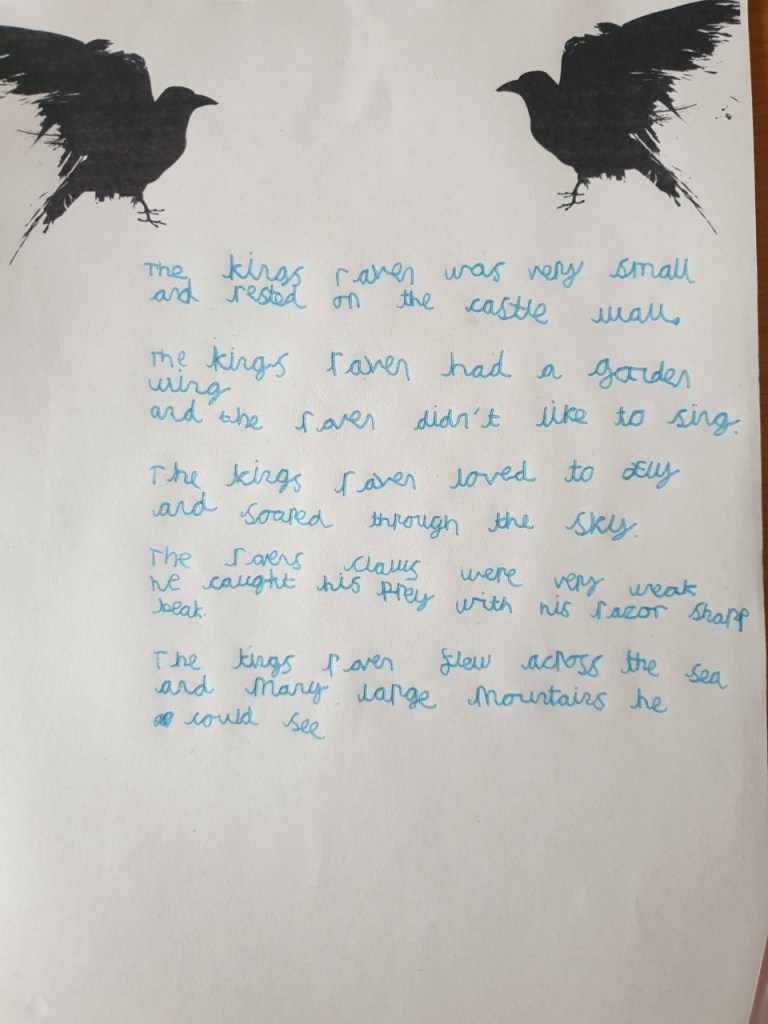 The kings raven was very small
and rested on the castle wall.
The kings raven had a golden
wing
and the raven didn't like to sing.
The kings raven loved to fly
and soared through the sky.
The ravens claws were very weak
he caught his prey with his razor sharp
beak.
The kings raven flew across the sea
and many large mountains he
could see